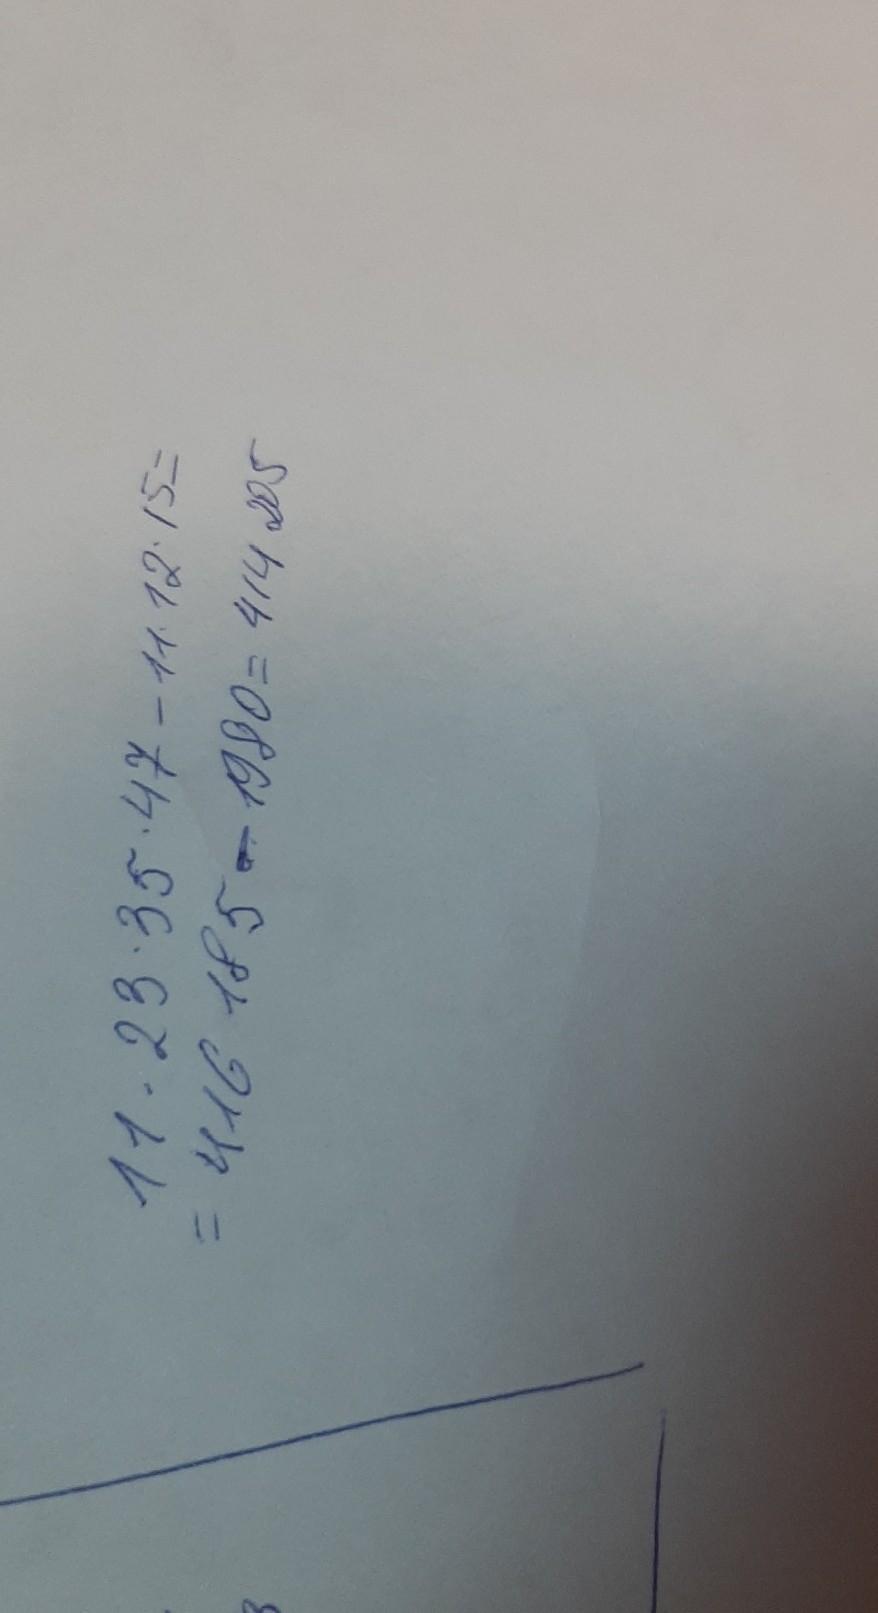 11·23·35·47-11·12·15=
=416185-1980=414205